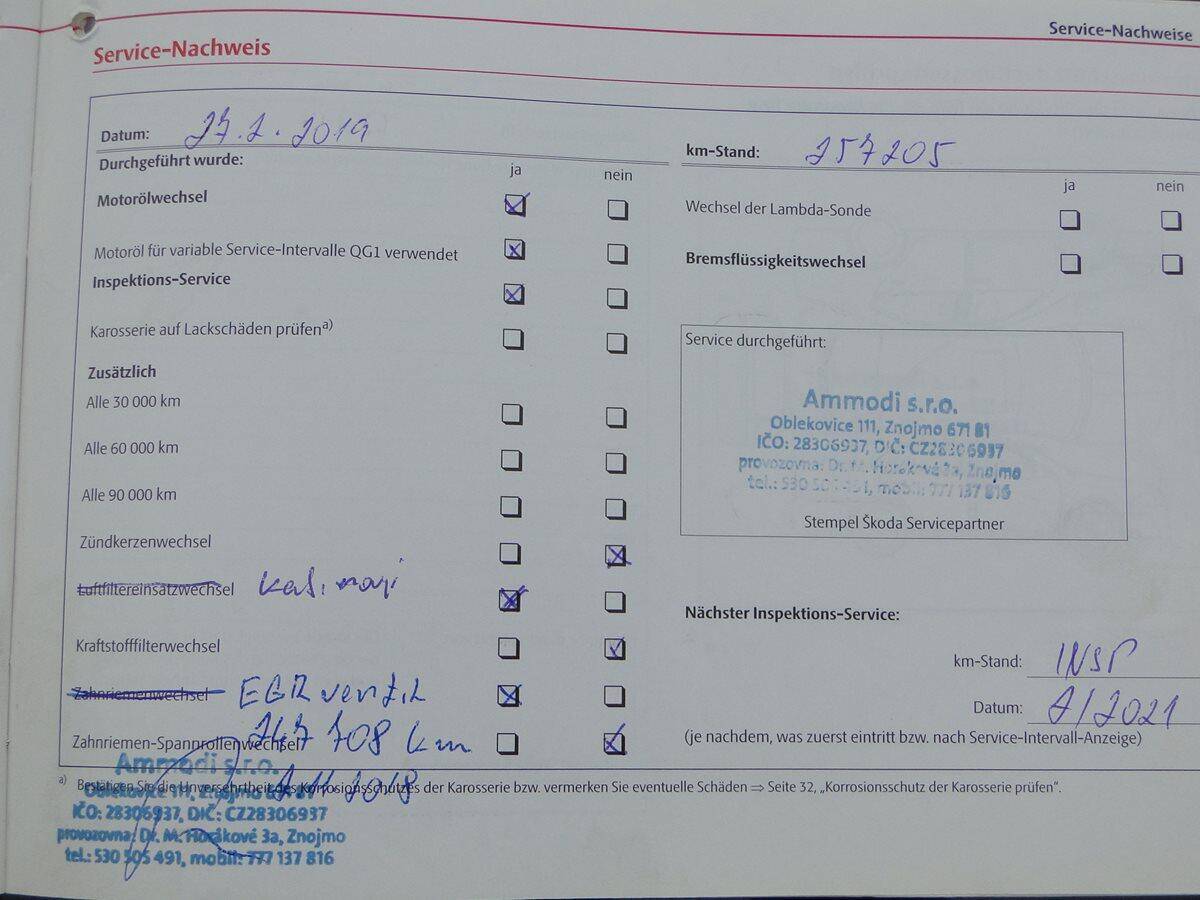 Service-Nachweise
Service-Nachweis
Datum: 27.2.2019
km-Stand: 257205
Durchgeführt wurde:
ja nein
Motorölwechsel
Motoröl für variable Service-Intervalle QG1 verwendet
Inspektions-Service
Karosserie auf Lackschäden prüfen a)
Zusätzlich
Alle 30 000 km
Alle 60 000 km
Alle 90 000 km
Zündkerzenwechsel
Luftfiltereinsatzwechsel
Kraftstofffilterwechsel
Zahnriemenwechsel EGR ventil
Zahnriemen-Spannrollenwechsel 247 708 km
2018
ja nein
Wechsel der Lambda-Sonde
Bremsflüssigkeitswechsel
Service durchgeführt:
Ammodi s.r.o.
Oblekovice 111, Znojmo 671 81
IČO: 28306937, DIČ: CZ28306937
provozovna: Dr. M. Horákové 3a, Znojmo
tel.: 530 505 491, mobil: 777 137 816
Stempel Škoda Servicepartner
Nächster Inspektions-Service:
km-Stand: INSP
Datum: 2/2021
(je nachdem, was zuerst eintritt bzw. nach Service-Intervall-Anzeige)
a) Bestätigen Sie die Unversehrtheit des Korrosionsschutzes der Karosserie bzw. vermerken Sie eventuelle Schäden ⇒ Seite 32, „Korrosionsschutz der Karosserie prüfen“.
Ammodi s.r.o.
Oblekovice 111, Znojmo 671 81
IČO: 28306937, DIČ: CZ28306937
provozovna: Dr. M. Horákové 3a, Znojmo
tel.: 530 505 491, mobil: 777 137 816